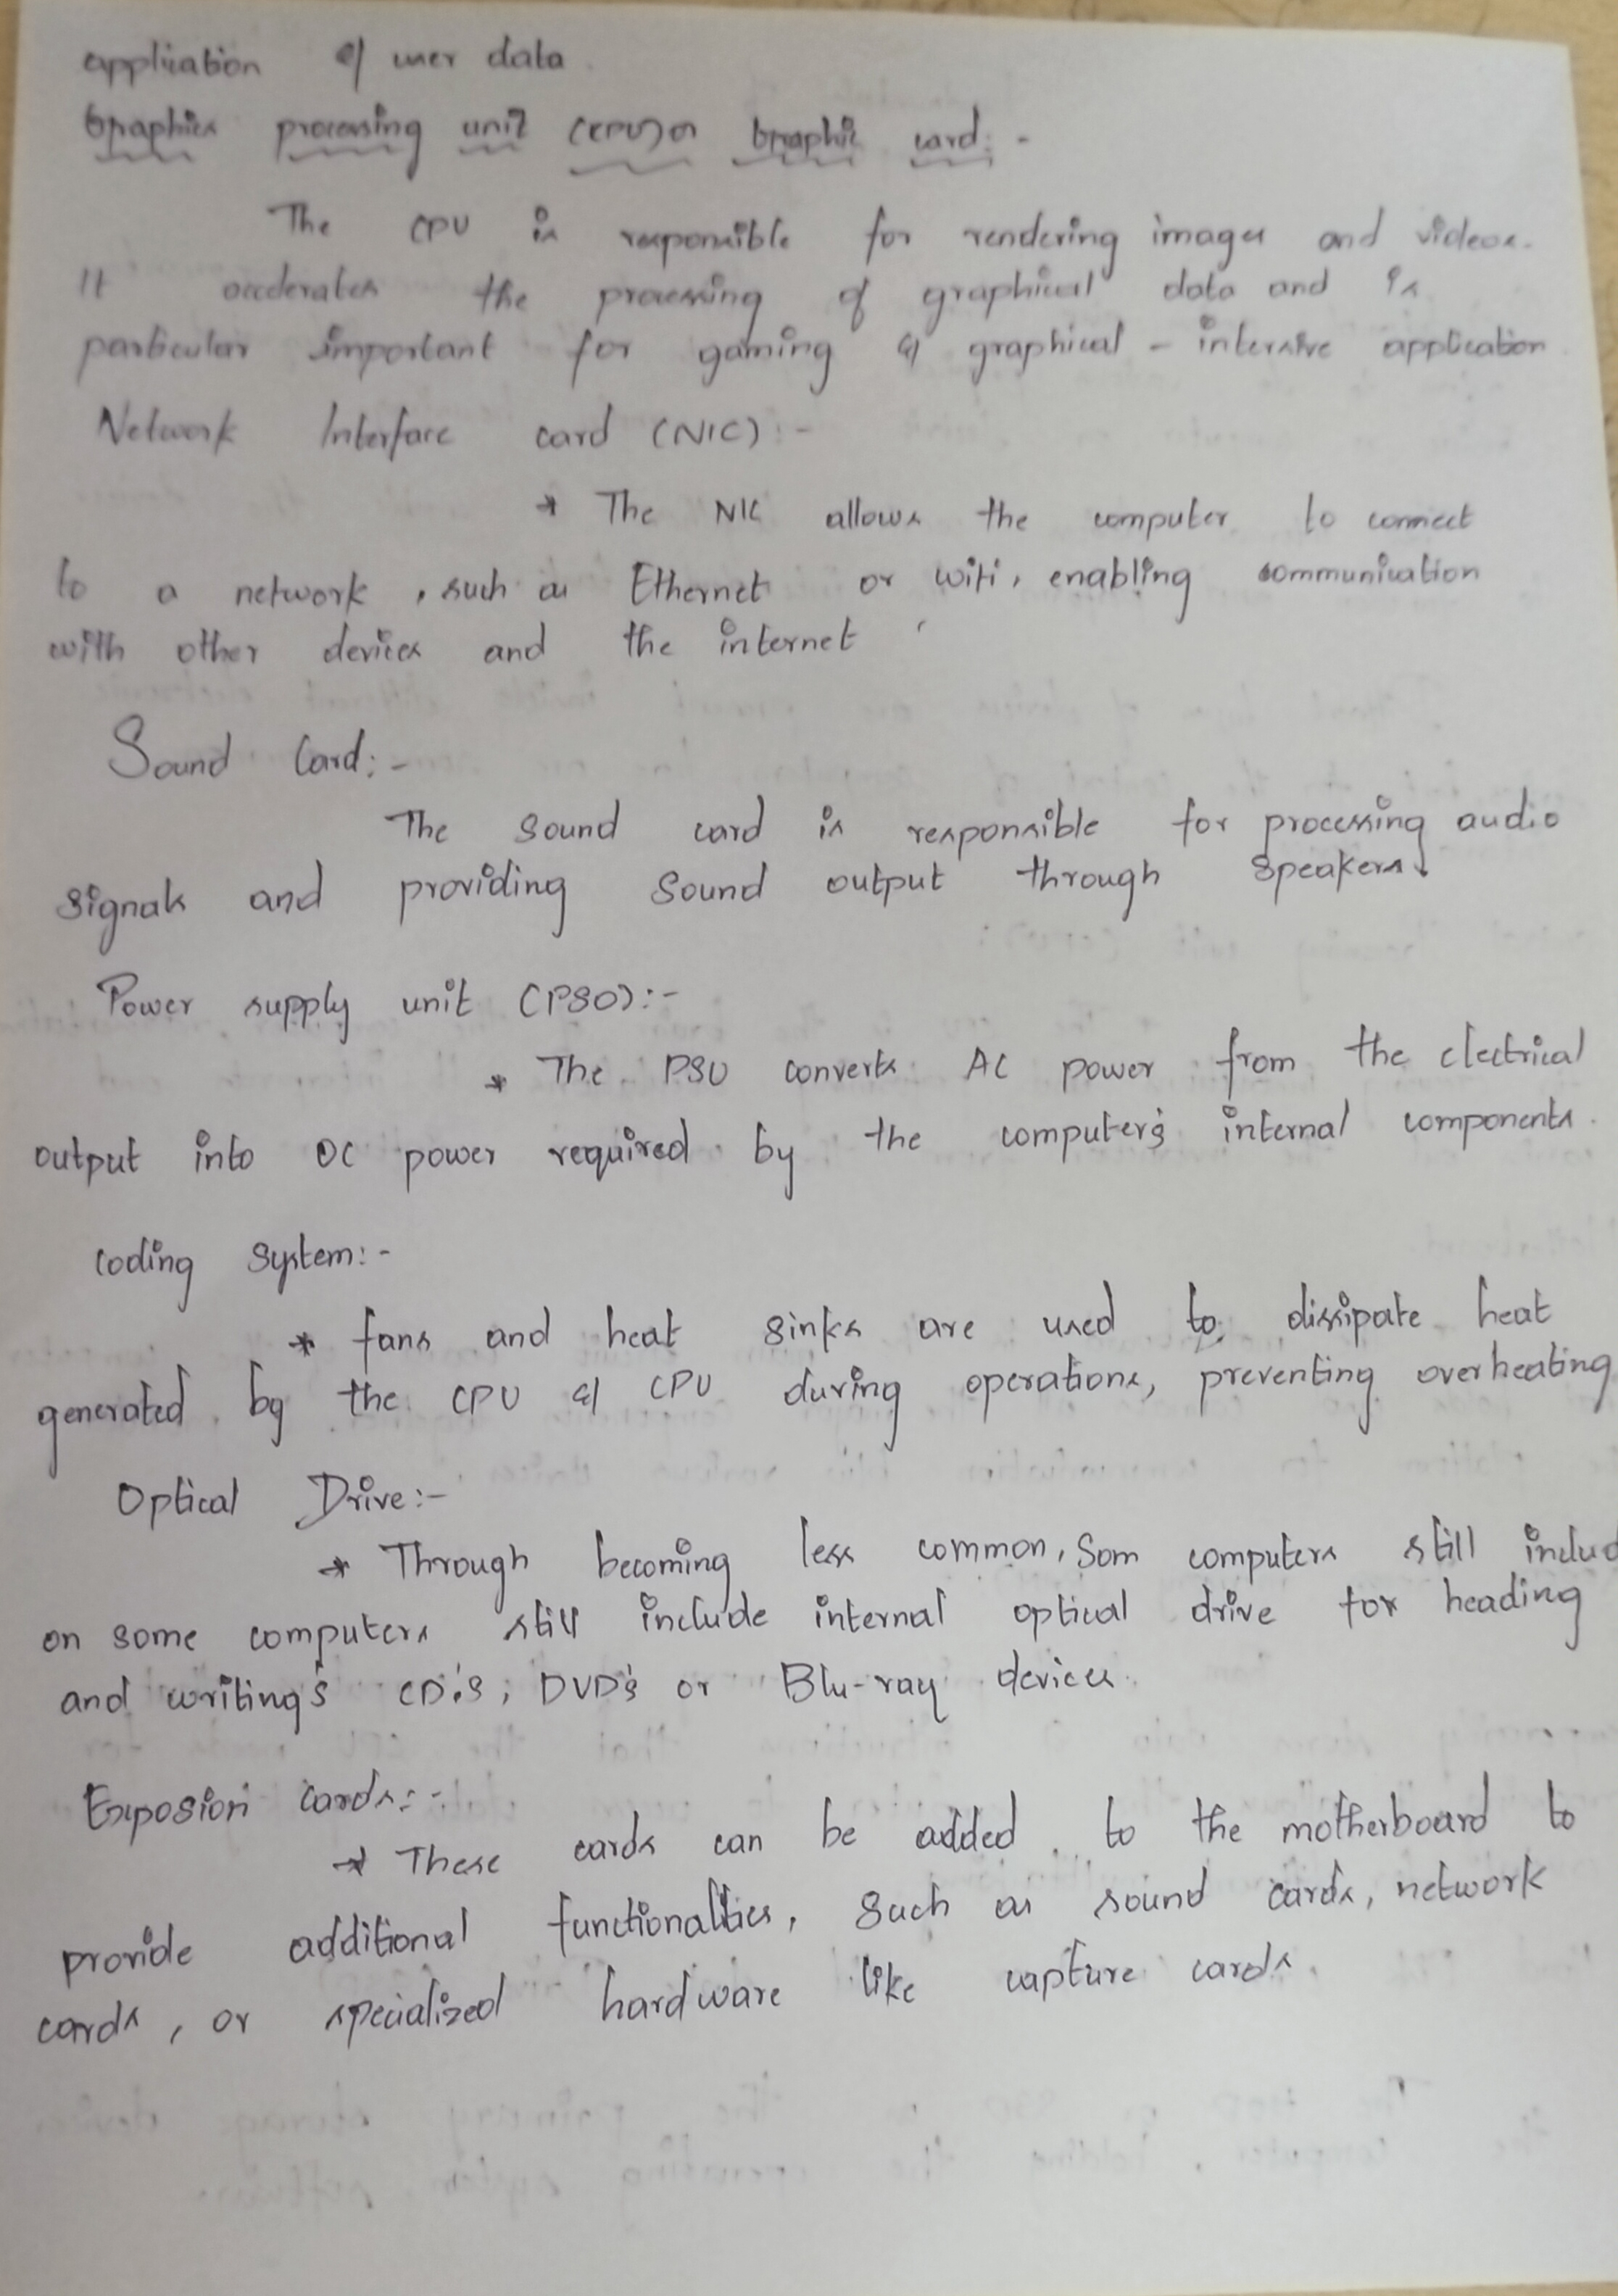 application & user data.
Graphics processing unit (GPU) or Graphic card:-
The GPU is responsible for rendering images and videos.
It accelerates the processing of graphical data and is
particular important for gaming & graphical - intensive application
Network Interface card (NIC):-
* The NIC allows the computer to connect
to a network, such as Ethernet or wifi, enabling communication
with other devices and the internet
Sound Card:-
The Sound card is responsible for processing audio
signals and providing Sound output through Speakers.
Power supply unit (PSU):-
* The PSU converts AC power from the electrical
output into DC power required by the computer's internal components.
Cooling System:-
* fans and heat sinks are used to dissipate heat
generated by the CPU & GPU during operations, preventing overheating
Optical Drive:-
* Through becoming less common, Som computers still includ
on some computers still include internal optical drive for heading
and writing's CD's, DVD's or Blu-ray devices.
Exposion cards:-
* These cards can be added to the motherboard to
provide additional functionalties, such as sound cards, network
cards, or specialized hardware like capture cards.